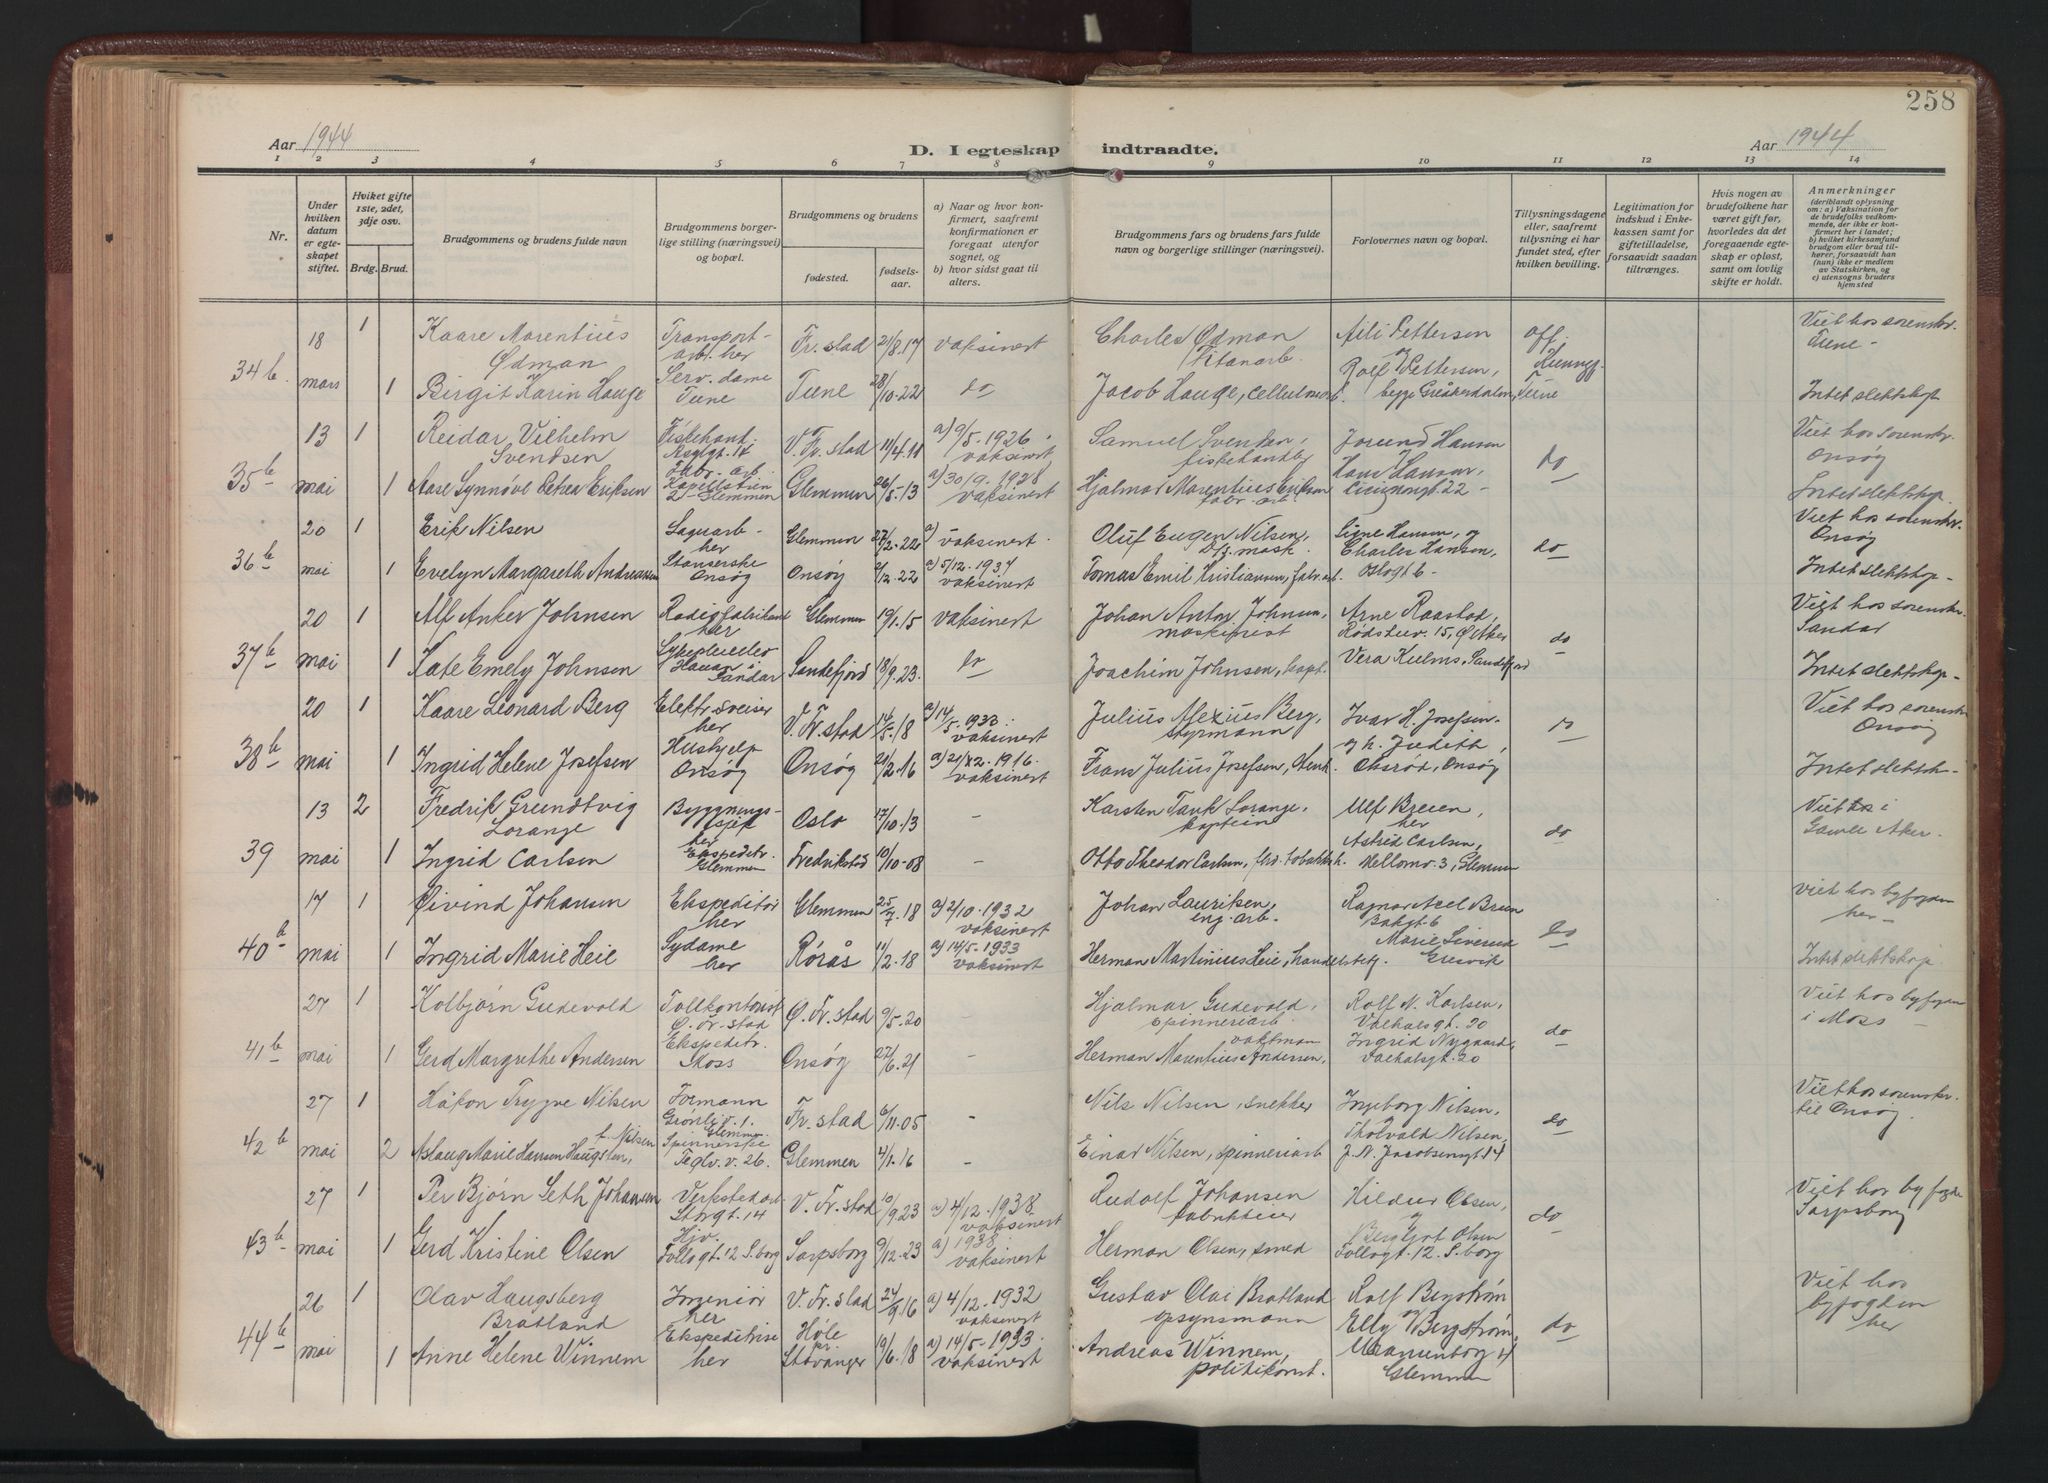 258
Aar 1944
D. I egteskap indtraadte.
Aar 1944
1 2 3 4 5 6 7 8 9 10 11 12 13 14
Nr.
Under hvilken datum er egteskapet stiftet.
Hviket gifte 1ste, 2det, 3dje osv.
Brdg. Brud.
Brudgommens og brudens fulde navn
Brudgommens borgerlige stilling (næringsvei) og bopæl.
Brudgommens og brudens
fødested.
fødselsaar.
a) Naar og hvor konfirmert, saafremt konfirmationen er foregaat utenfor sognet, og
b) hvor sidst gaat til alters.
Brudgommens fars og brudens fars fulde navn og borgerlige stillinger (næringsvei).
Forlovernes navn og bopæl.
Tillysningsdagene eller, saafremt tillysning ei har fundet sted, efter hvilken bevilling.
Legitimation for indskud i Enkekassen samt for giftetilladelse, forsaavidt saadan tiltrænges.
Hvis nogen av brudefolkene har været gift før, hvorledes da det foregaaende egteskap er opløst, samt om lovlig skifte er holdt.
Anmerkninger
(deriblandt oplysning om: a) Vaksination for de brudefolks vedkommende, der ikke er konfirmert her i landet; b) hvilket kirkesamfund brudgom eller brud tilhører, forsaavidt han (hun) ikke er medlem av Statskirken, og c) utensogns bruders hjemsted
34b. 18 mars
1 Kaare Marentius Ødman Transportarb. her Fr.stad 21/8.17 vaksinert Charles Ødman Titanarb. Aili Pettersen og off. Viet hos sorenskr. Tune -
1 Birgit Karin Hauge Serv. dame Tune Tune 28/10.22 do Jacob Hauge, cellulosearb. Rolf Pettersen, begge Greåkerdalen, Tune Intet slektskap
35b 13 mai
1 Reidar Vilhelm Svendsen Fiskehand. Asylgt. 14 V. Fr.stad 11/4.11 a) 9/5.1926 vaksinert Samuel Svendsen, fiskehandler Jorund Hansen do Viet hos sorenskr. Onsøy
1 Aase Synnøve Petrea Eriksen Fabr. arb. Kapellstien 2 - Glemmen Glemmen 26/5.13 a) 30/9.1928 vaksinert Hjalmar Marentius Eriksen fabr. arb. Hans Hansen, Ciciniongt. 22 - Intet slektskap.
36b 20 mai
1 Erik Nilsen Sagarb. her Glemmen 27/2.22 a) vaksinert Oluf Eugen Nilsen, mask. Signe Hansen, og do Viet hos sorenskr. Onsøy
1 Evelyn Margareth Andreassen Stanserske Onsøy Onsøy 2/12.22 a) 5/12.1937 vaksinert Tomas Emil Kristiansen, fabr. arb. Charles Hansen, Oslogt 6 - Intet slektskap -
37b 20 mai
1 Alf Anker Johnsen Radiofabrikant her Glemmen 19/1.15 vaksinert Johan Anton Johnsen, maskinist Arne Raastad, Rødstev. 15, Ø. Aker do Viet hos sorenskr. Sandar
1 Kate Emely Johnsen Sykepleieelev Hauan i Sandar Sandefjord 18/9.23. do Joachim Johnsen, kapt. Vera Kulms, Sandefjord Intet slektskap -
38b 20 mai
1 Kaare Leonard Berg Elektr. sveiser her V. Fr.stad 14/5.18 a) 14/5.1933 vaksinert Julius Alexius Berg, styrmann Ivar H. Josefsen do Viet hos sorenskr. Onsøy
1 Ingrid Helene Josefsen Hushjelp Onsøy Onsøy 21/2.16 vaksinert Frans Julius Josefsen, stenh. og h. Judith, Oksrød, Onsøy Intet slektsk.
39 13 mai
2 Fredrik Grundtvig Lorange Byggningssjef her Oslo 17/10.13 - Karsten Tank Lorange, kaptein Ulf Breien, her do Viet i Gamle Aker.
1 Ingrid Carlsen Ekspeditr. Glemmen Fredrikstad 10/10-08 - Otto Theodor Carlsen, fhv. tobakksh. Astrid Carlsen, Mellomv. 3, Glemmen
40b 17 mai
1 Øivind Johansen Ekspeditør her Glemmen 25/7.18 a) 2/10.1932 vaksinert Johan Lauritsen eng. arb. Ragnar Breien Bakgt. 6 do Viet hos byfogden her -
1 Ingrid Marie Heie Sydame her Rørås 11/2.18 a) 14/5.1933 vaksinert Herman Martinius Heie, handelsbetj. Marie Siverud Gresvik Intet slektskap.
41b 27 mai
1 Kolbjørn Gudevold Tollkontorist Ø. Fr.stad Ø. Fr.stad 9/5.20 - Hjalmar Gudevold, spinneriarb. Rolf N. Karlsen, Valhalsgt. 20 do Viet hos byfogden i Moss -
1 Gerd Margrethe Andersen Ekspeditr. Moss Onsøy 27/6.21 - Herman Marentius Andersen, vaktman Ingrid Nygaard, Valhalsgt. 20
42b 27 mai
1 Håkon Trygve Nilsen Formann Grønliv. 1. Glemmen Fr. stad 6/11.05 - Nils Nilsen, snekker Ingeborg Nilsen, do Viet hos sorenskr. til Onsøy.
2 Aslaug Marie Hansen Haugsten, f. Nilsen Spinnerske Teglv. v. 26. Glemmen 4/1.16 - Einar Nilsen, spinneriarb Tholvald Nilsen, J. N. Jacobsensgt. 14
43b 27 mai
1 Per Bjørn Seth Johansen Verkstedarb. Storgt. 14 V. Fr. stad 10/9.23 a) 4/12.1938 vaksinert Rudolf Johansen fabrikkeier Hildur Olsen, og do Viet hos byfogde Sarpsborg
1 Gerd Kristine Olsen Hjv. Follogt. 12 S. borg Sarpsborg 9/12.23 a) 1938. vaksinert Herman Olsen, smed Bergljot Olsen Follogt. 12. S. borg
44b 26 mai
1 Olav Haugsberg Bratland Ingeniør her V. Fr. stad 24/9.16 a) 4/12.1932 vaksinert Gustav Olai Bratland opsynsmann Rolf Bergstrøm og do Viet hos byfogden her
1 Anne Helene Winnem Ekspeditrise her Høle pr. Stavanger 19/6.18 a) 14/5-1933. vaksinert Andreas Winnem, politikonst. Elly Bergstrøm, Glemmen